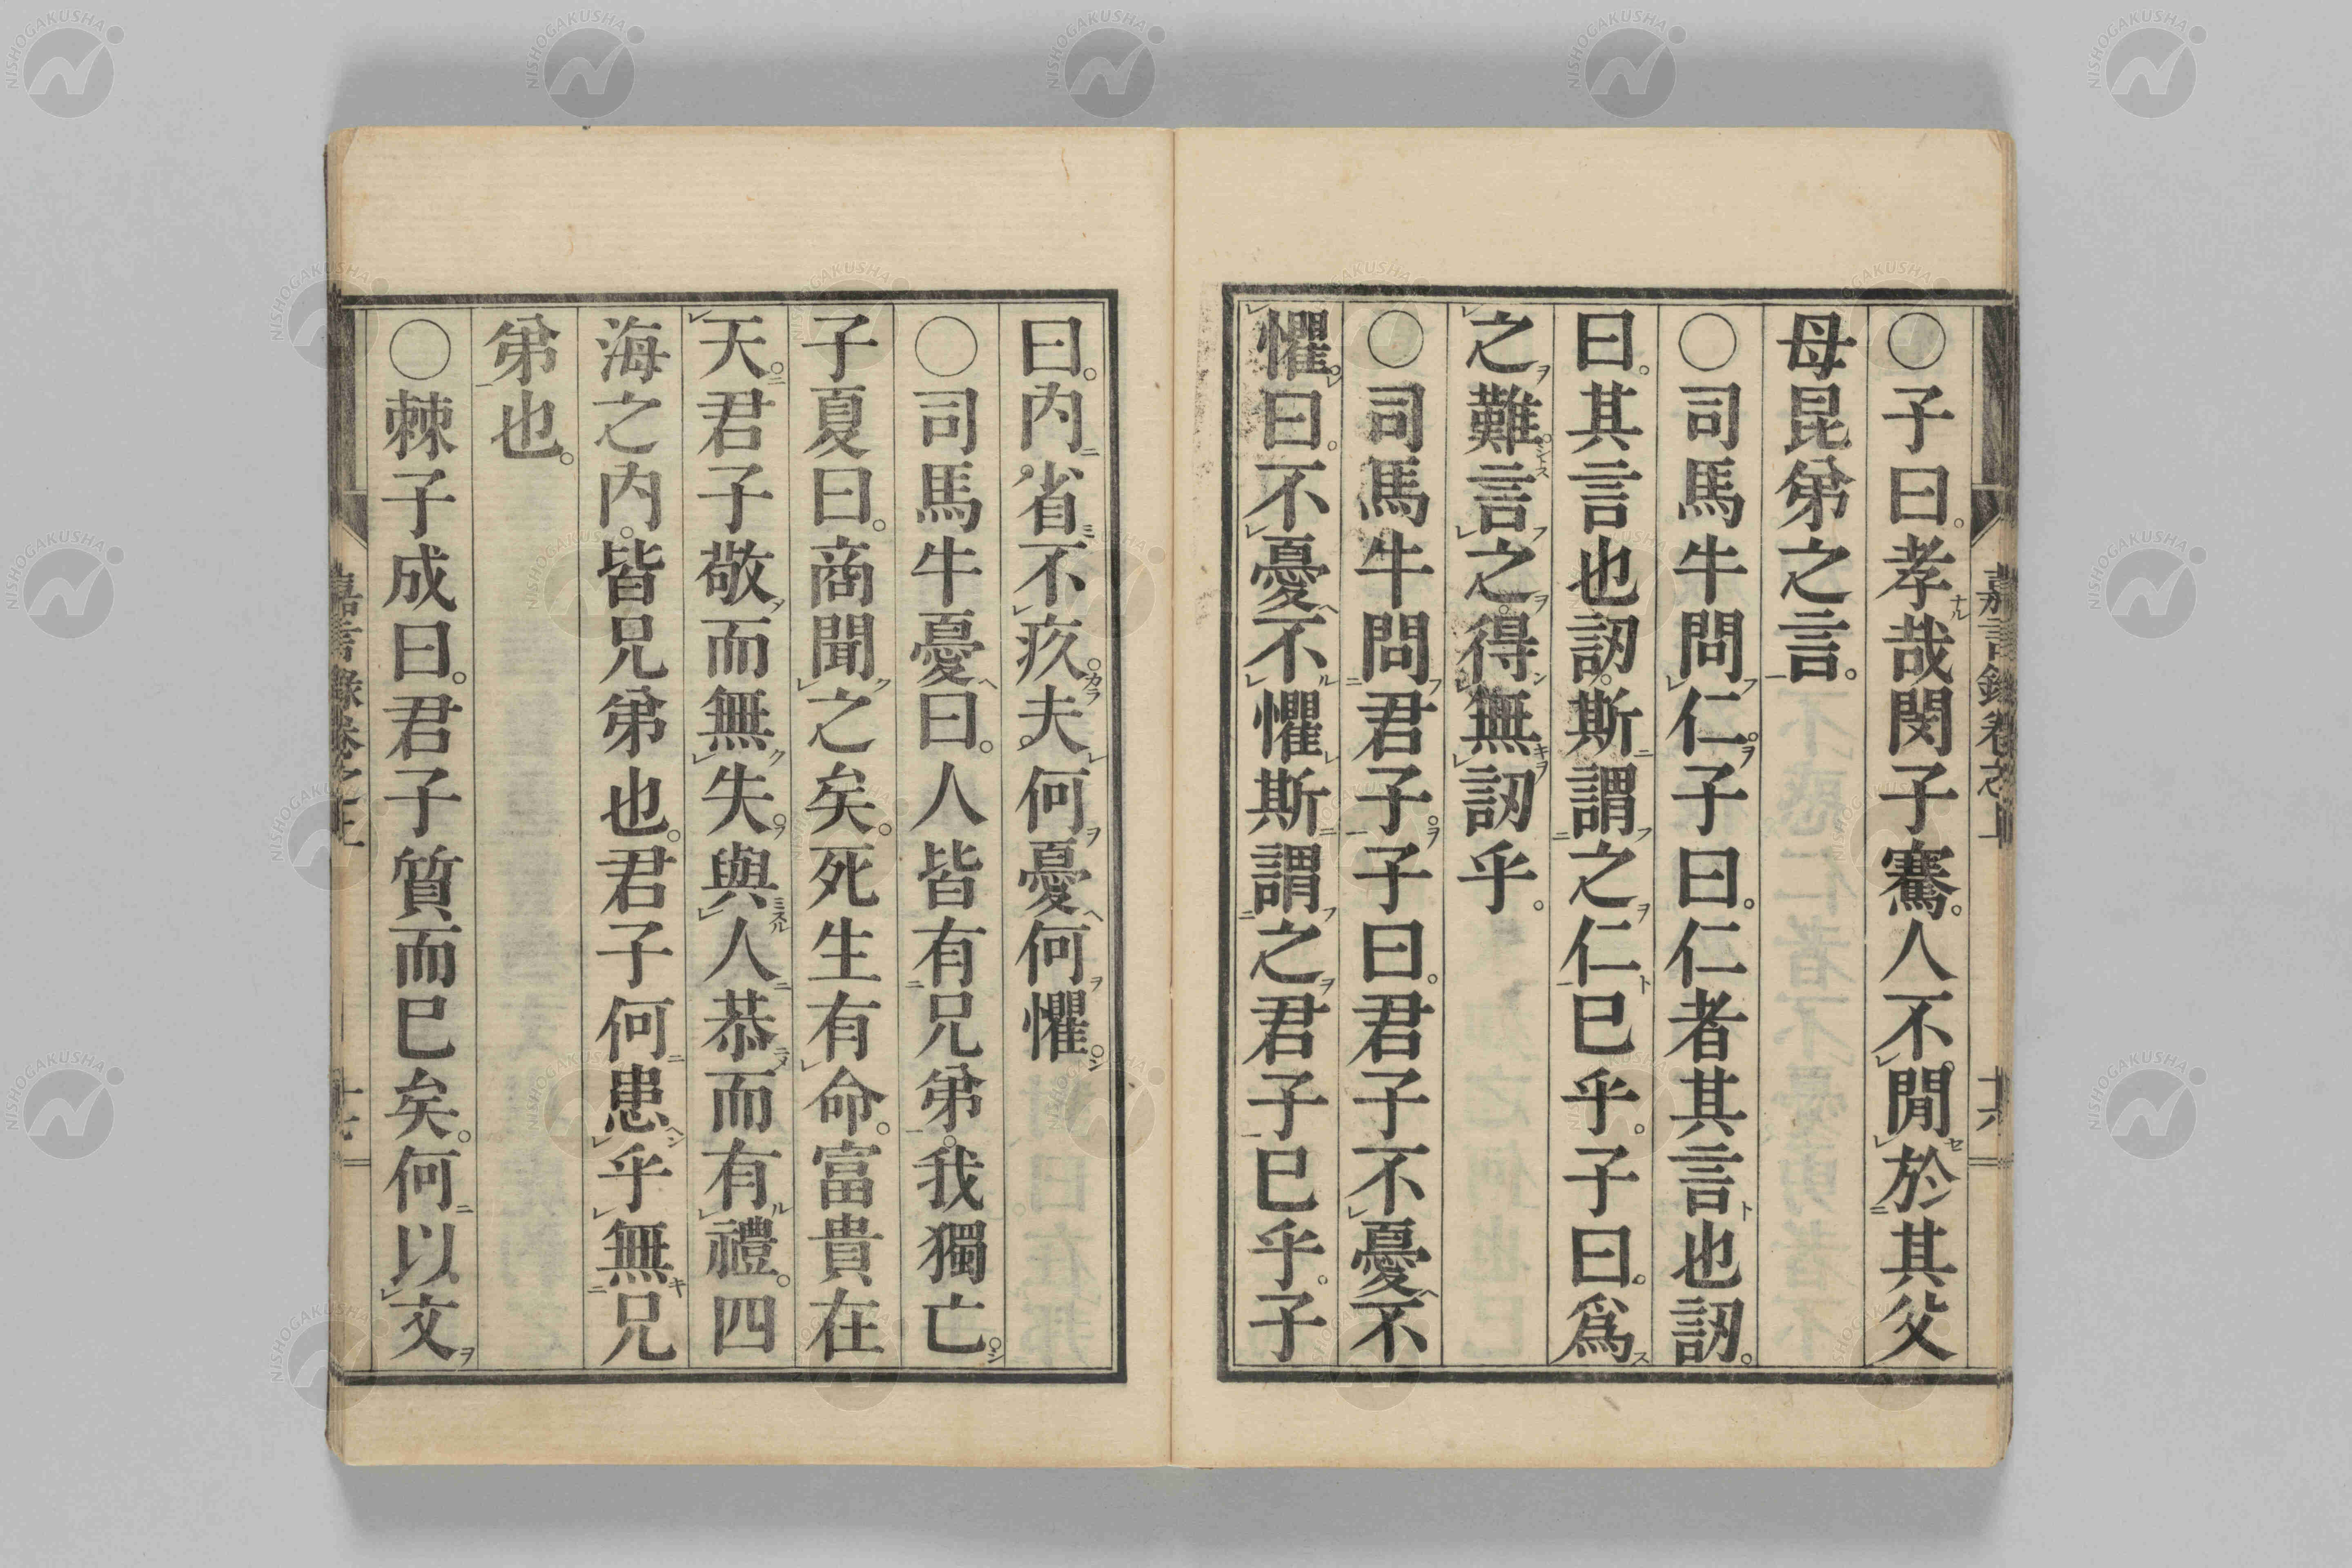 ○子曰。孝哉閔子騫。人不閒於其父
母昆弟之言。
○司馬牛問仁。子曰。仁者其言也訒。
曰。其言也訒。斯謂之仁已乎。子曰。爲
之難。言之。得無訒乎。
○司馬牛問君子。子曰。君子不憂不
懼。曰。不憂不懼斯謂之君子已乎。子
曰。内省不疚。夫何憂何懼。
○司馬牛憂曰。人皆有兄弟。我獨亡。
子夏曰。商聞之矣。死生有命。富貴在
天。君子敬而無失。與人恭而有禮。四
海之内。皆兄弟也。君子何患乎無兄
弟也。
○棘子成曰。君子質而已矣。何以文
嘉言錄卷之上
十六
NISHOGAKUSHA